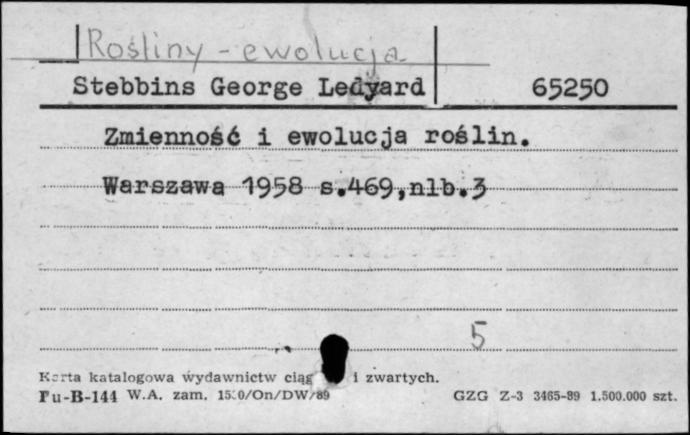 Rośliny - ewolucja
Stebbins George Ledyard 65250
Zmienność i ewolucja roślin.
Warszawa 1958 s.469,nlb.3
5
Karta katalogowa wydawnictw ciąg i zwartych.
Pu-B-144 W.A. zam. /On/DW/89 GZG Z-3 3465-89 1.500.000 szt.